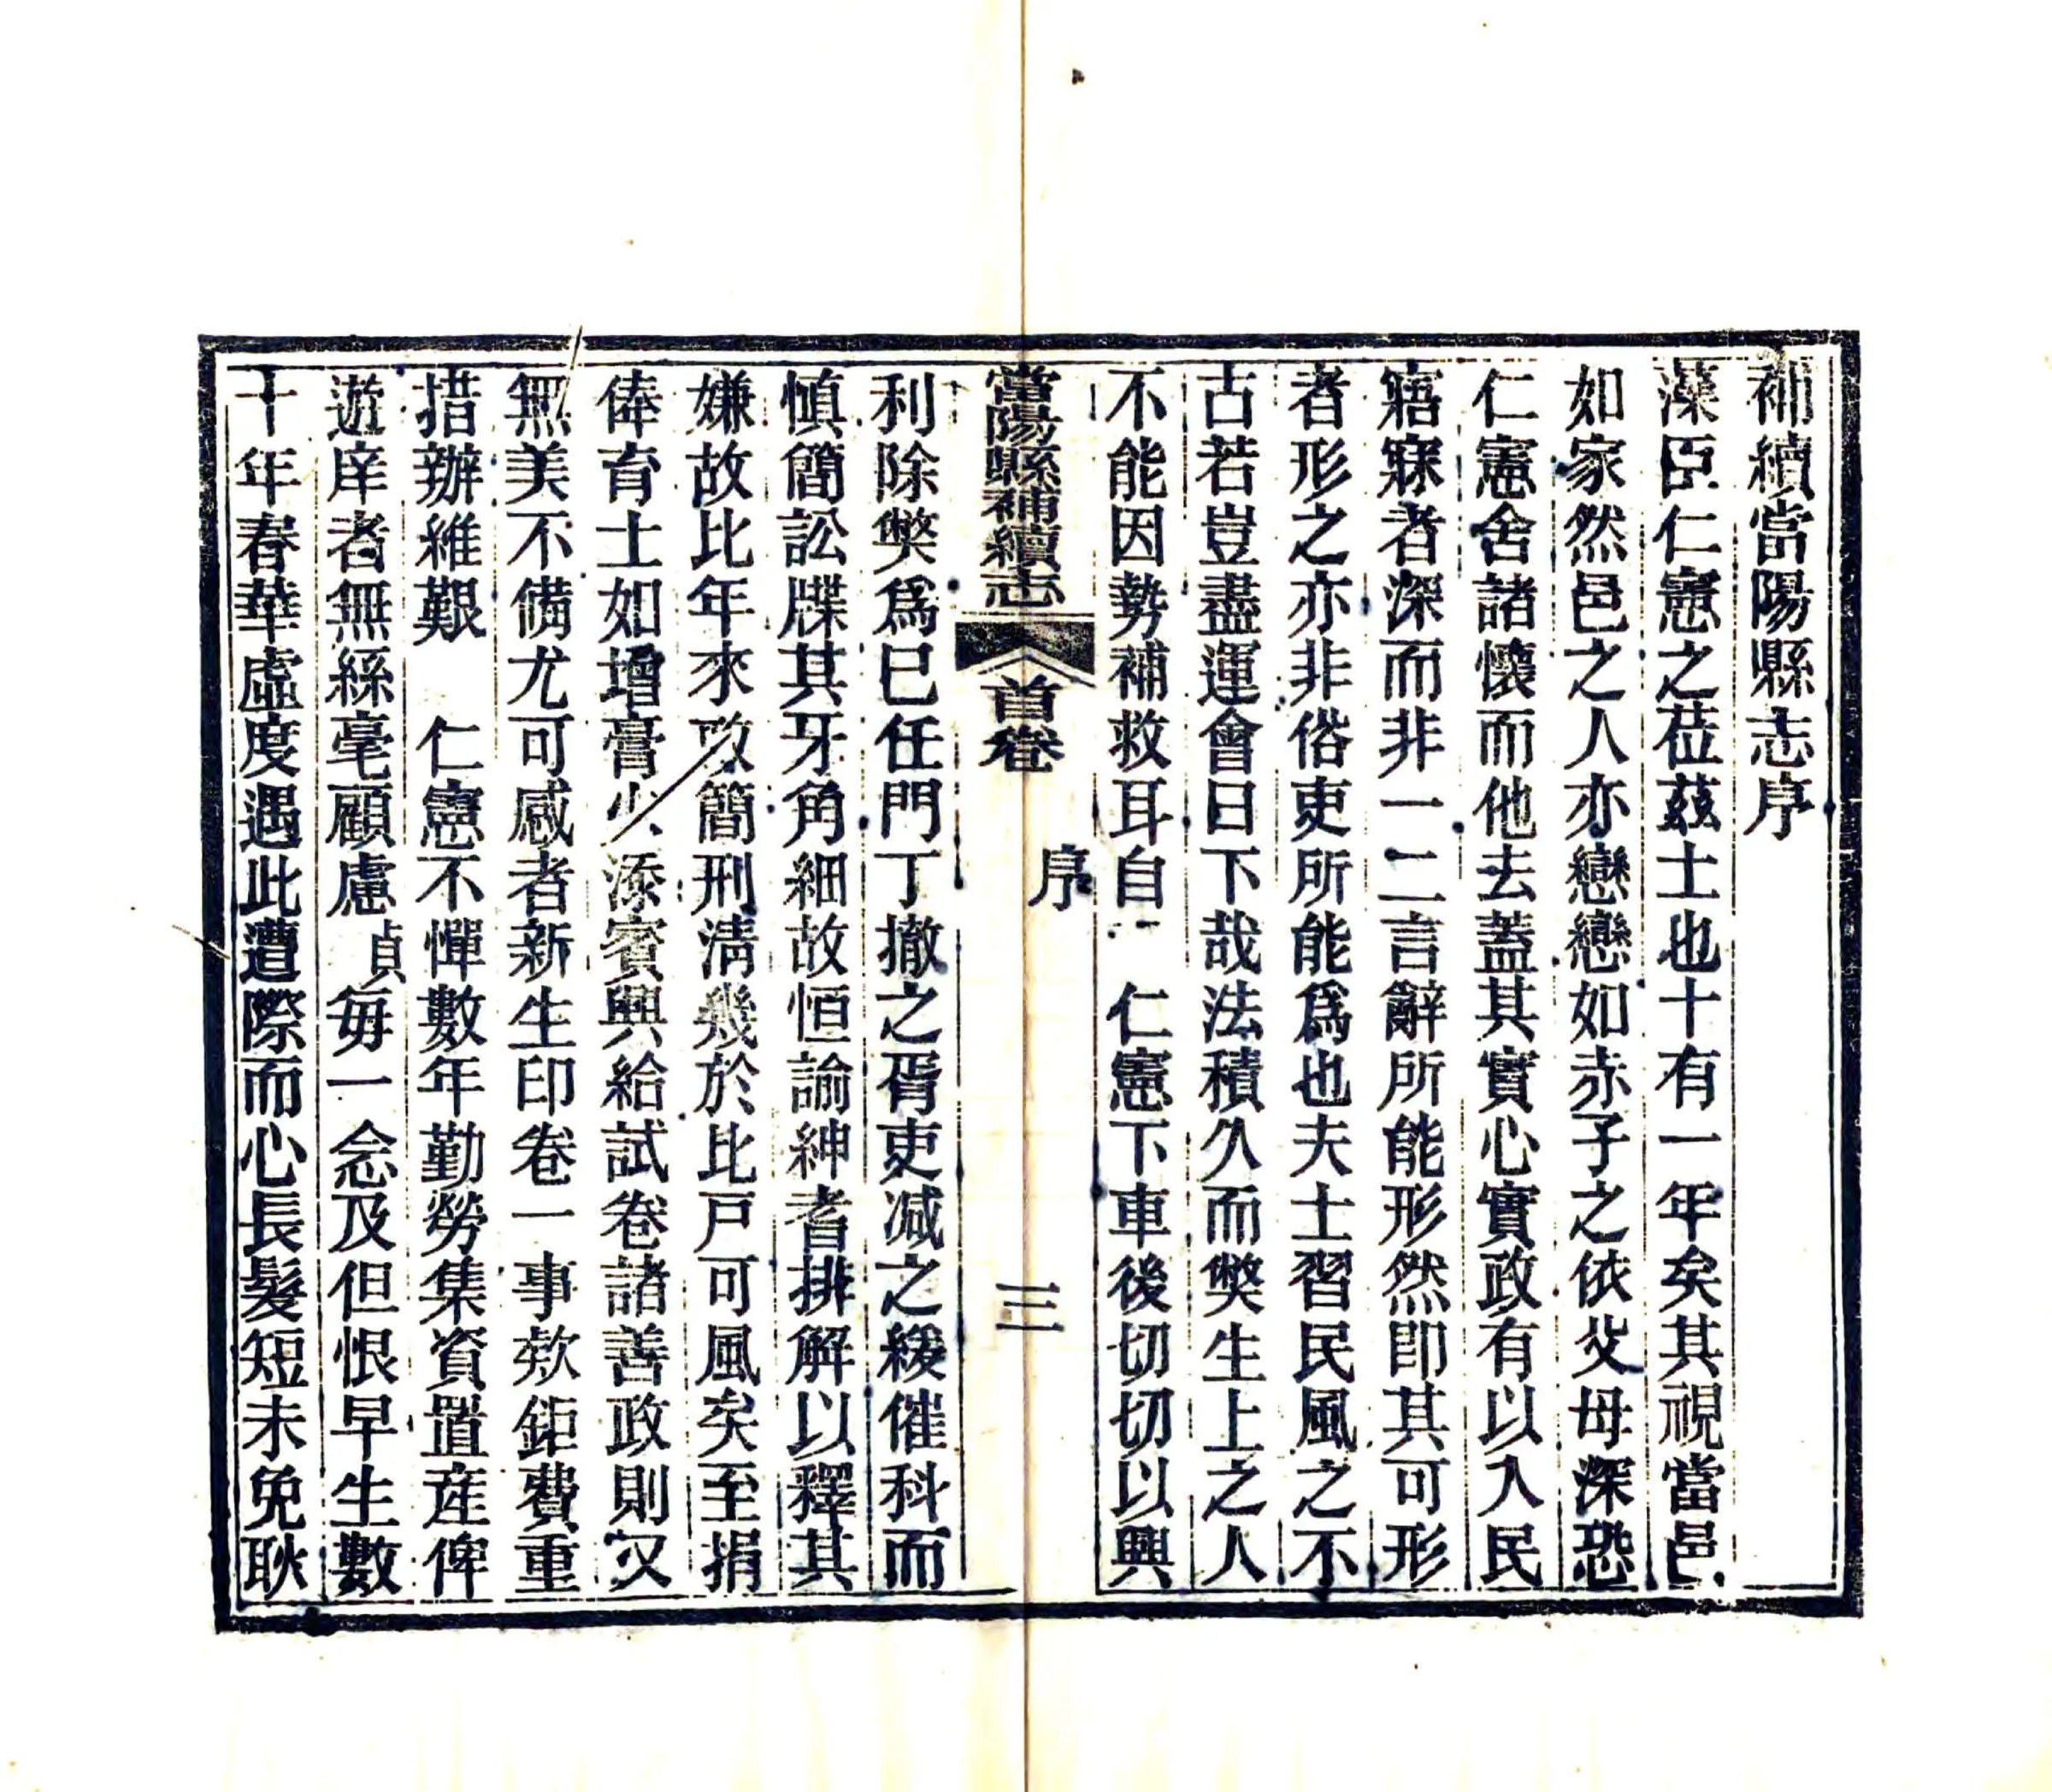 補續當陽縣志序
藻臣仁憲之莅茲土也十有一年矣其視當邑
如家然邑之人亦戀戀如赤子之依父母深恐
仁憲舍諸懷而他去蓋其實心實政有以入民
寤寐者深而非一二言辭所能形然卽其可形
者形之亦非俗吏所能爲也夫士習民風之不
古若豈盡運會日下哉法積久而獘生上之人
不能因勢補救耳自 仁憲下車後切切以興
當陽縣補續志 首卷 序 三
利除獘爲已任門丁撤之胥吏减之緩催科而
慎簡訟牒其牙角細故恒諭紳耆排解以釋其
嫌故比年來政簡刑淸幾於比戸可風矣至捐
俸育士如增膏火添賓興給試卷諸善政則又
無美不備尤可感者新生印卷一事欵鉅費重
措辦維艱 仁憲不憚數年勤勞集資置産俾
遊庠者無絲毫顧慮 貞毎一念及但恨早生數
十年春華虛度遇此遭際而心長髮短未免耿